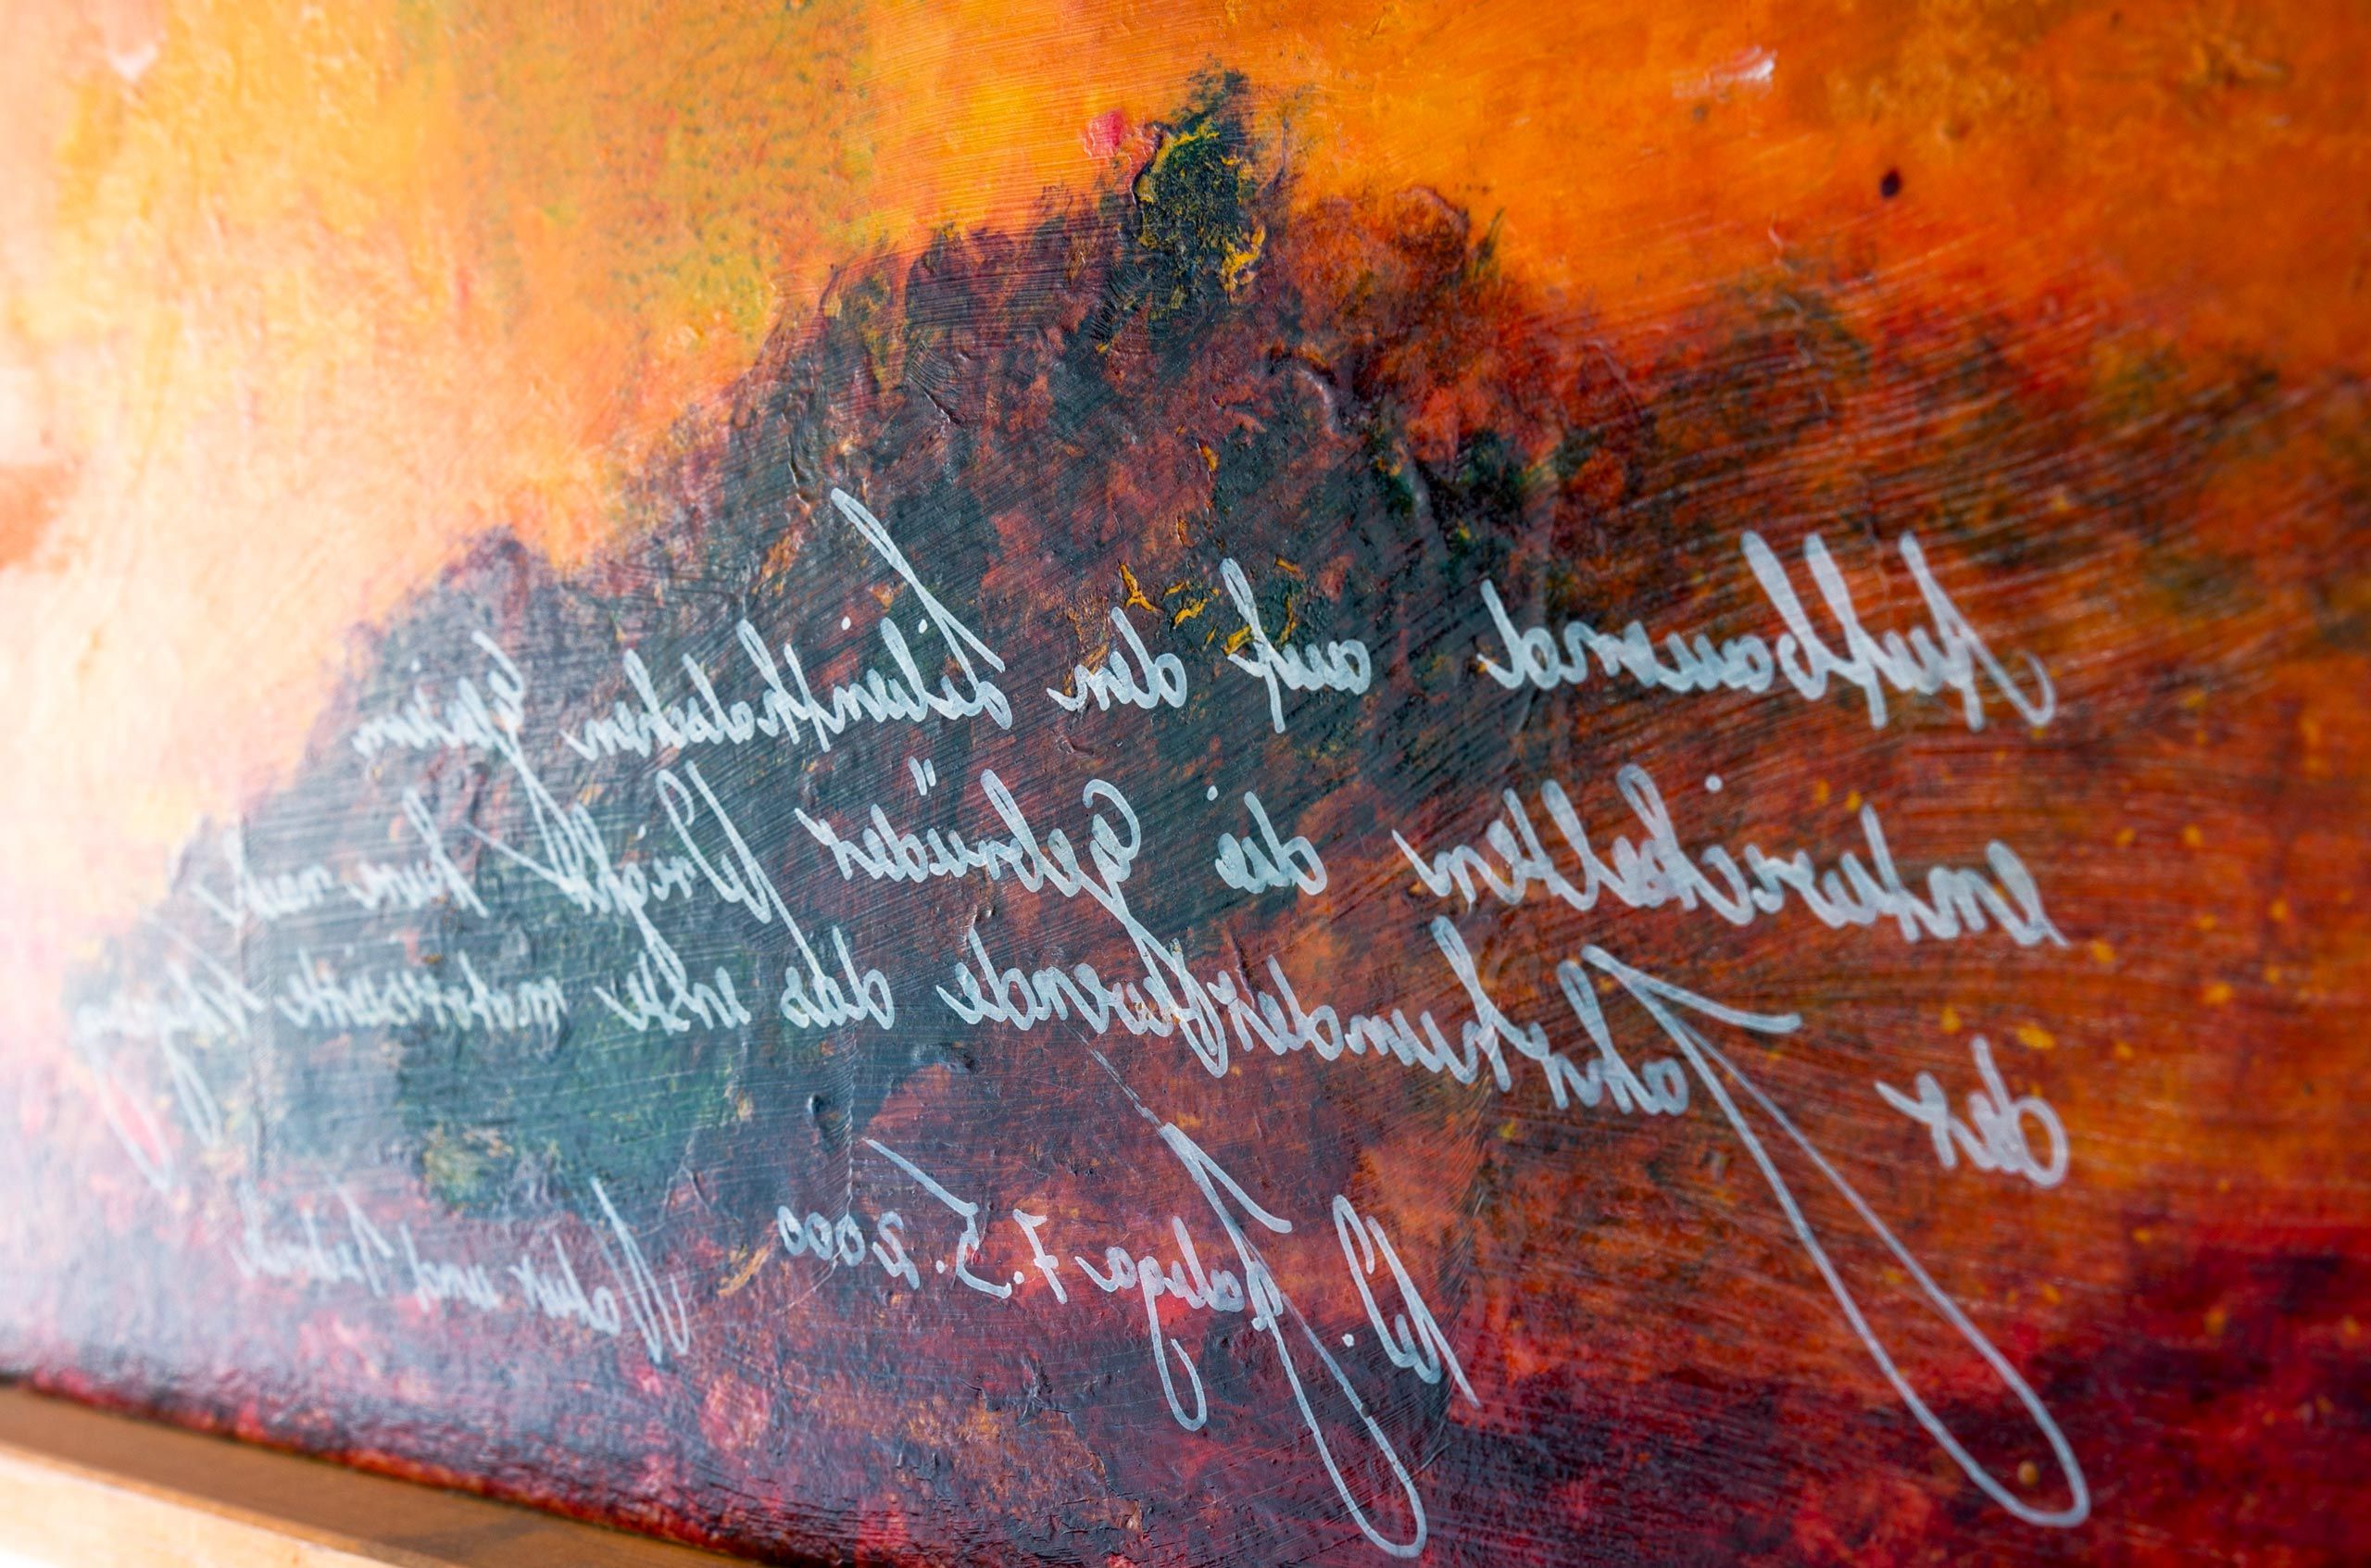 Aufbauend auf den Lilienthalschen
entwickelten die Gebrüder Wright kurz nach
der Jahrhundertwende das erste motorisierte Flugzeug
W. 7.5.2000 Natur und Technik